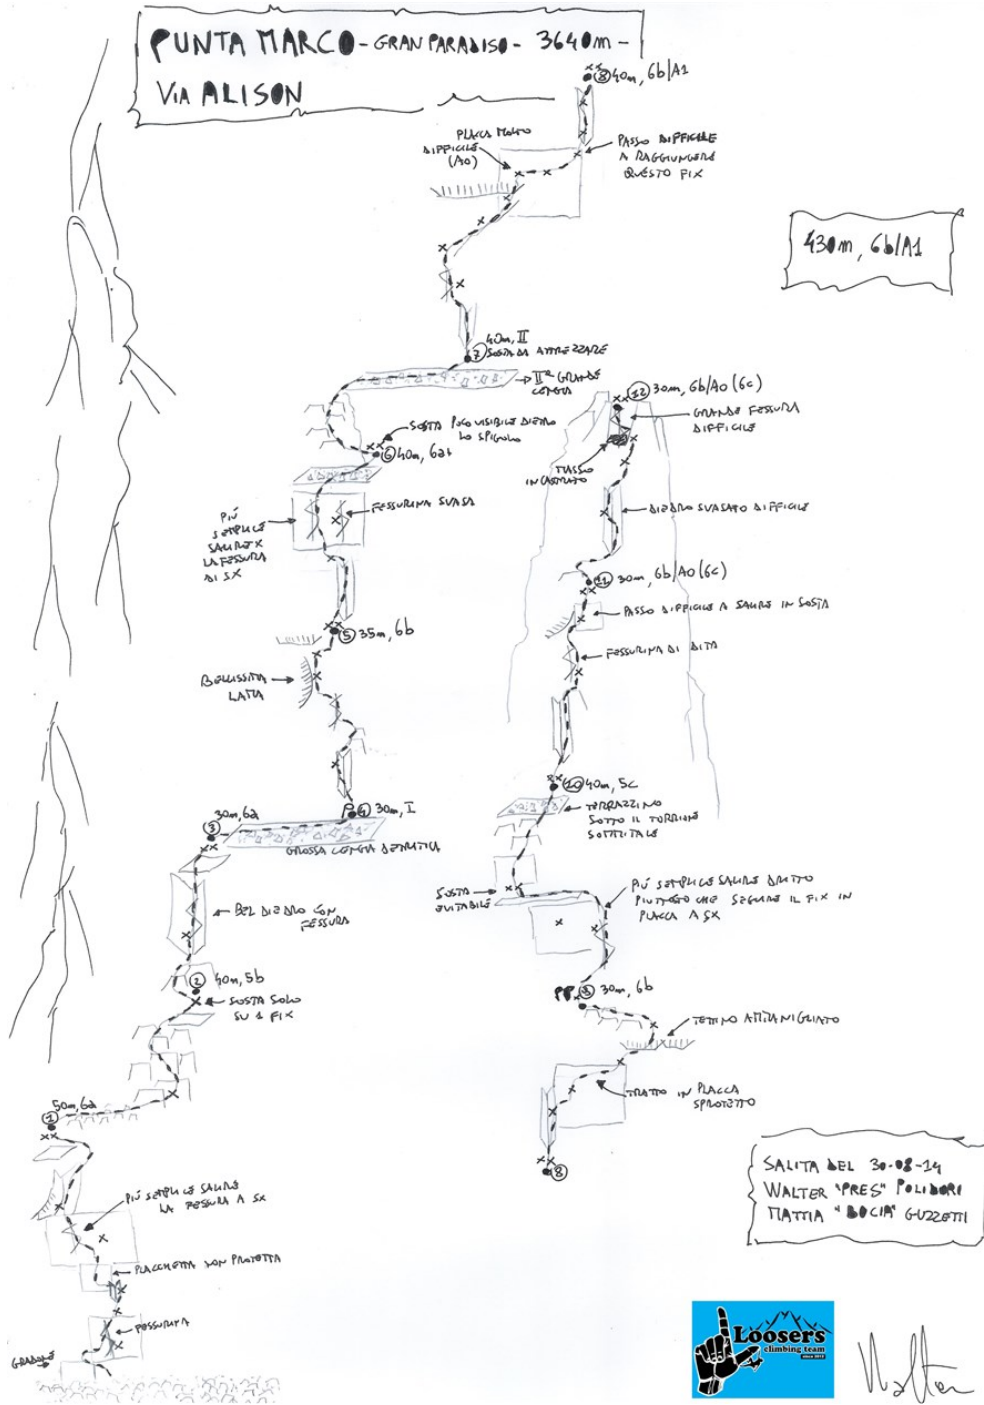 PUNTA MARCO - GRAN PARADISO - 3640m -
VIA ALISON
8 40m, 6b/A1
PLACCA MOLTO
DIFFICILE
(A0)
PASSO DIFFICILE
A RAGGIUNGERE
QUESTO FIX
430m, 6b/A1
7 40m, II
SOSTA DA ATTREZZARE
IIª GRANDE
CENGIA
SOSTA POCO VISIBILE DIETRO
LO SPIGOLO
6 40m, 6a+
FESSURINA SVASA
PIÚ
SEMPLICE
SALIRE X
LA FESSURA
DI SX
5 35m, 6b
BELLISSIMA
LAMA
4 30m, I
3 30m, 6a
GROSSA CENGIA DETRITICA
BEL DIEDRO CON
FESSURA
2 40m, 5b
SOSTA SOLO
SU 1 FIX
1 50m, 6a
PIÚ SEMPLICE SALIRE
LA FESSURA A SX
PLACCHETTA NON PROTETTA
FESSURINA
GRADONE
12 30m, 6b/A0 (6c)
GRANDE FESSURA
DIFFICILE
MASSO
INCASTRATO
DIEDRO SVASATO DIFFICILE
11 30m, 6b/A0 (6c)
PASSO DIFFICILE A SALIRE IN SOSTA
FESSURINA DI DITA
10 40m, 5c
TERRAZZINO
SOTTO IL TORRIONE
SOMMITALE
SOSTA
EVITABILE
PIÚ SEMPLICE SALIRE DRITTO
PIUTTOSTO CHE SEGUIRE IL FIX IN
PLACCA A SX
9 30m, 6b
TETTINO AMMANIGLIATO
TRATTO IN PLACCA
SPROTETTO
8
SALITA DEL 30-08-14
WALTER "PRES" POLIDORI
MATTIA "BOCIA" GUZZETTI
Loosers
climbing team
since 2012
Walter